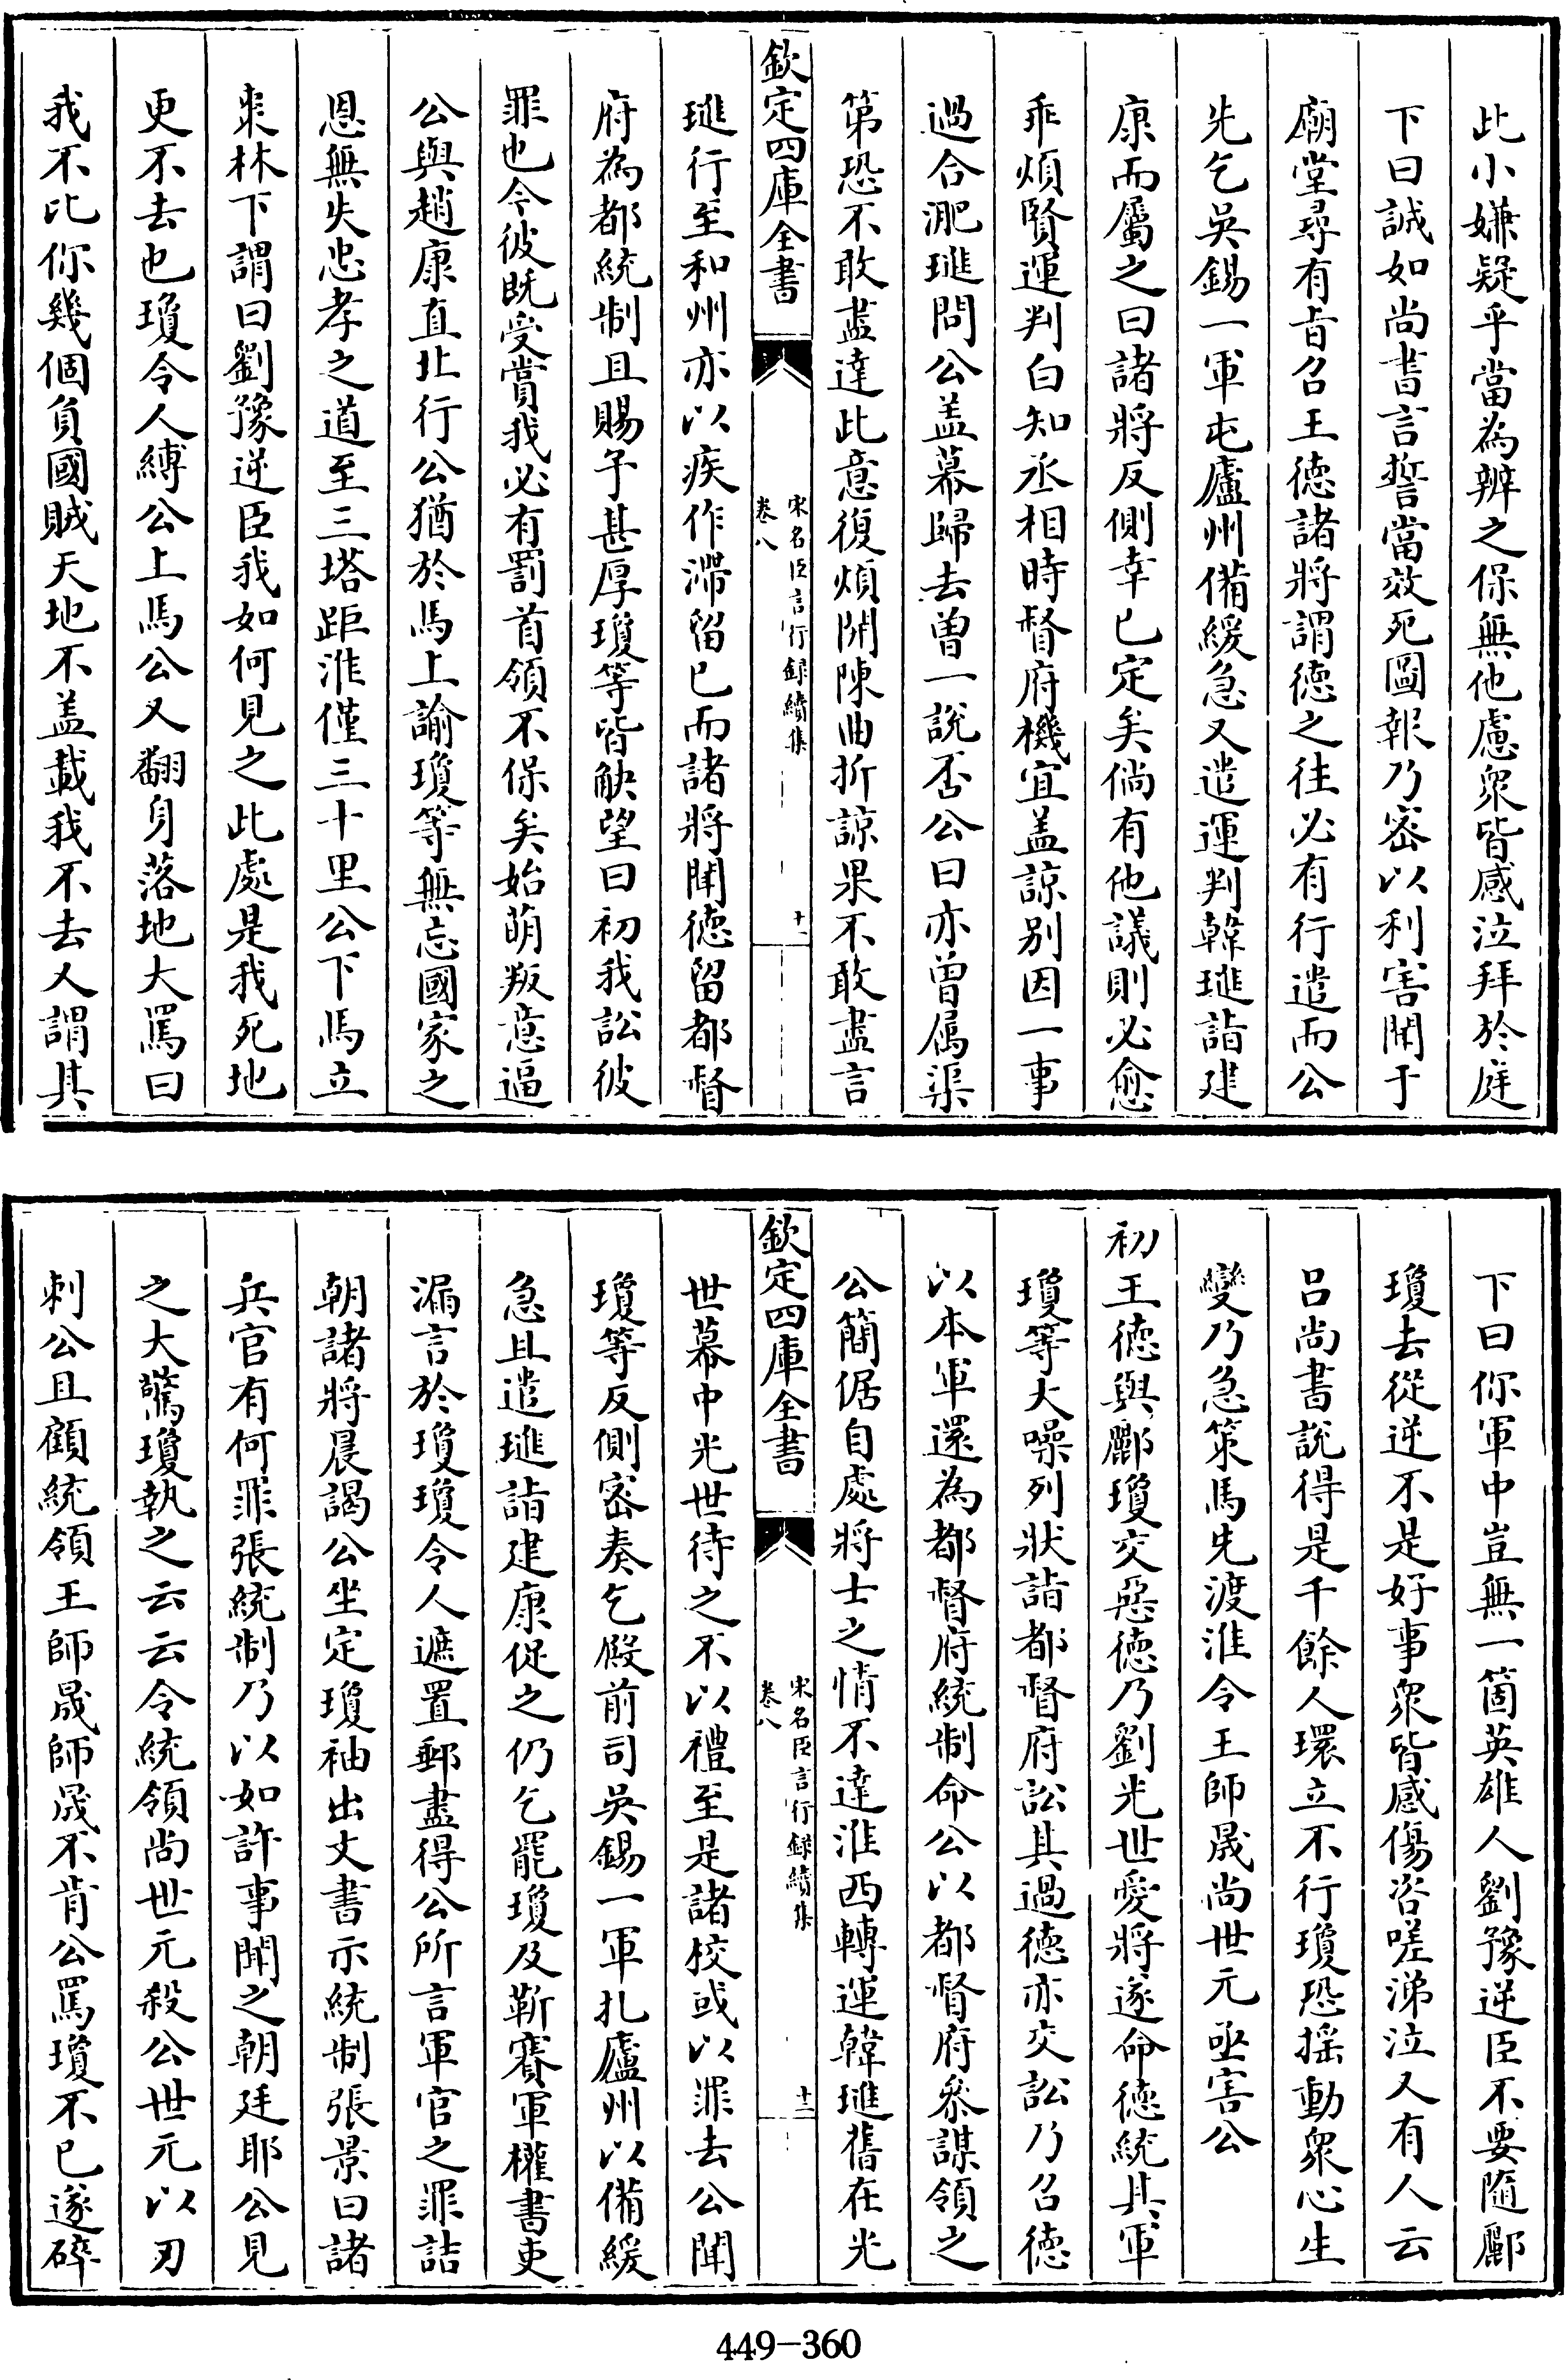 此小嫌疑乎當為辨之保無他慮衆皆感泣拜於庭
下曰誠如尚書言誓當效死圖報乃密以利害聞于
廟堂尋有旨召王德諸將謂德之往必有行遣而公
先乞吳錫一軍屯廬州備緩急又遣運判韓璡詣建
康而屬之曰諸將反側幸已定矣倘有他議則必愈
乖煩賢運判白知丞相時督府機宜盖諒别因一事
過合淝璡問公盖幕歸去曽一說否公曰亦曽属渠
第恐不敢盡達此意復煩開陳曲折諒果不敢盡言
欽定四庫全書
宋名臣言行録續集
卷八
十一
璡行至和州亦以疾作滯留已而諸將聞德留都督
府為都統制且賜予甚厚瓊等皆觖望曰初我訟彼
罪也今彼既受賞我必有罰首領不保矣始萌叛意逼
公與趙康直北行公猶於馬上諭瓊等無忘國家之
恩無失忠孝之道至三塔距淮僅三十里公下馬立
枣林下謂曰劉豫逆臣我如何見之此處是我死地
更不去也瓊令人縛公上馬公又翻身落地大罵曰
我不比你幾個負國賊天地不盖載我不去又謂其
下曰你軍中豈無一箇英雄人劉豫逆臣不要隨酈
瓊去從逆不是好事衆皆感傷咨嗟涕泣又有人云
吕尚書說得是千餘人環立不行瓊恐摇動衆心生
變乃急策馬先渡淮令王師晟尚世元亟害公
初王德與酈瓊交惡德乃劉光世愛將遂命德統其軍
瓊等大噪列狀詣都督府訟其過德亦交訟乃召德
以本軍還為都督府統制命公以都督府叅謀領之
公簡倨自處將士之情不達淮西轉運韓璡舊在光
欽定四庫全書
宋名臣言行録續集
卷八
十二
世幕中光世待之不以禮至是諸校或以罪去公聞
瓊等反側密奏乞殿前司吳錫一軍扎廬州以備緩
急且遣璡詣建康促之仍乞罷瓊及靳賽軍權書吏
漏言於瓊瓊令人遮置郵盡得公所言軍官之罪詰
朝諸將晨謁公坐定瓊袖出文書示統制張景曰諸
兵官有何罪張統制乃以如許事聞之朝廷耶公見
之大驚瓊執之云云令統領尚世元殺公世元以刃
刺公且顧統領王師晟師晟不肯公罵瓊不已遂碎
449-360